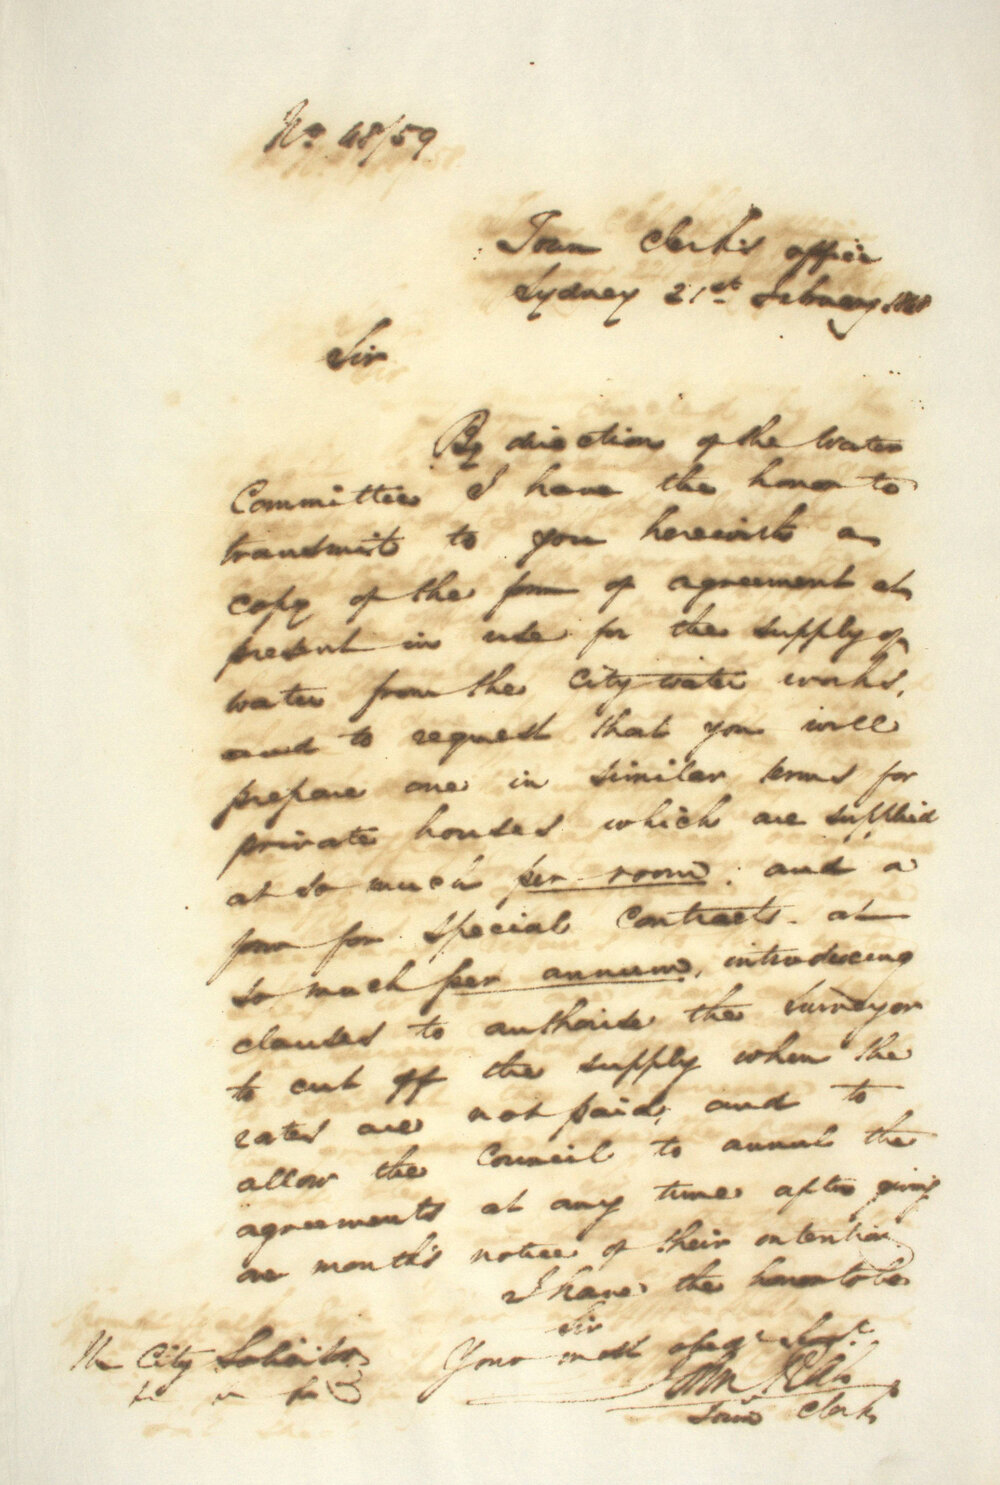 No. 48/59
Town Clerk's office
Sydney 21st February 1848
Sir
By direction of the Water
Committee I have the honor to
transmit to you herewith a
copy of the form of agreement at
present in use for the supply of
water from the City water works,
and to request that you will
prepare one in similar terms for
private houses which are supplied
at so much per room; and a
form for special Contracts at
so much per annum, introducing
clauses to authorise the surveyor
to cut off the supply when the
rates are not paid, and to
allow the Council to annul the
agreements at any time after giving
one month's notice of their intention.
I have the honor to be
Sir
Your most obedt Servt
John Rae
Town Clerk
The City Solicitor